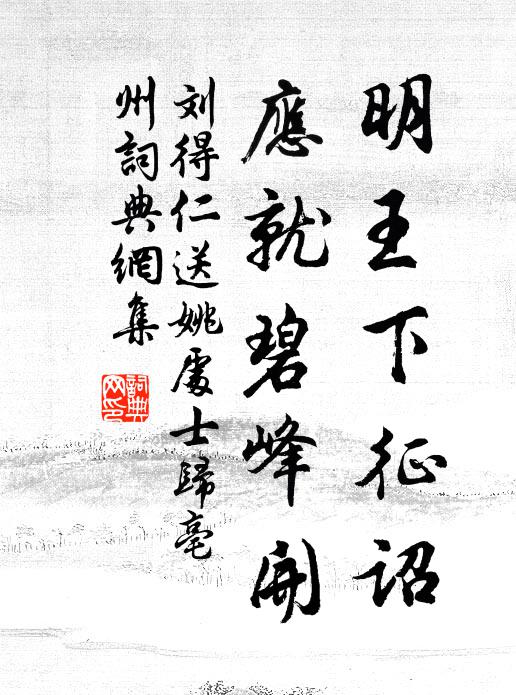 明王下征詔
應就碧峰開
刘得仁送姚處士歸亳
州詞典網集
詞典
网印